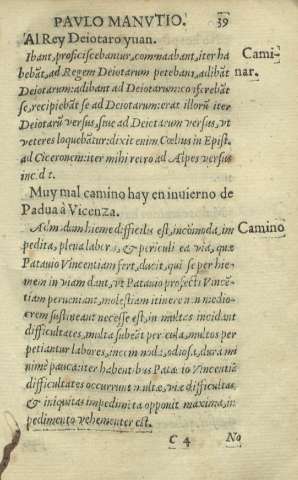 PAVLO MANVTIO. 39
Al Rey Deiotaro yuan.
Ibant, proficiscebantur, commeabant, iter ha
bebãt, ad Regem Deiotarum petebant, adibãt
Deiotarum: adibant ad Deiotarum: cõferebãt
se, recipiebãt se ad Deiotarum: erat illorũ iter
Deiotarũ versus, siue ad Deiotarum versus, vt
veteres loquebãtur: dixit enim Cœlius in Epist.
ad Ciceronem: iter mihi retro ad Alpes versus
inc.d.t.
Cami-
nar.
Muy mal camino hay en inuierno de
Padua à Vicenza.
Admodam hieme difficilis est, incõmoda, im
pedita, plena labor s, & periculi ea via, quæ
Patauio Vincentiam fert, ducit, qui se per hie-
mem in viam dant, vt Patauio profecti Vincẽ-
tiam perueniant, molestiam itinere n n medio-
crem sustineant necesse est, in multas incidant
difficultates, multa subeãt pericula, multos per
petiantur labores, incommoda, odiosa, dura mi
nimè pauca: iter habentibus Patauio Vincentiã
difficultates occurrunt multæ, viæ difficultas
& iniquitas impedimẽta opponit maxima, im
pedimento vehementer est.
Camino
C 4 No